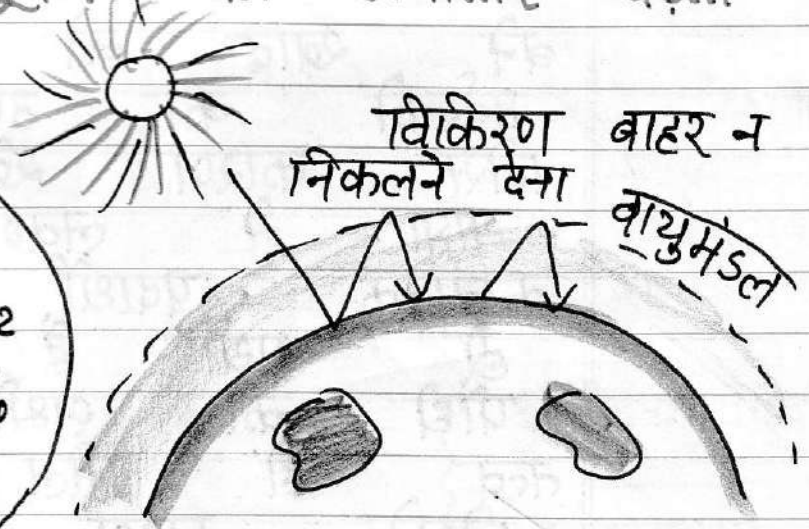 विकिरण बाहर न
निकलने देना
वायुमंडल